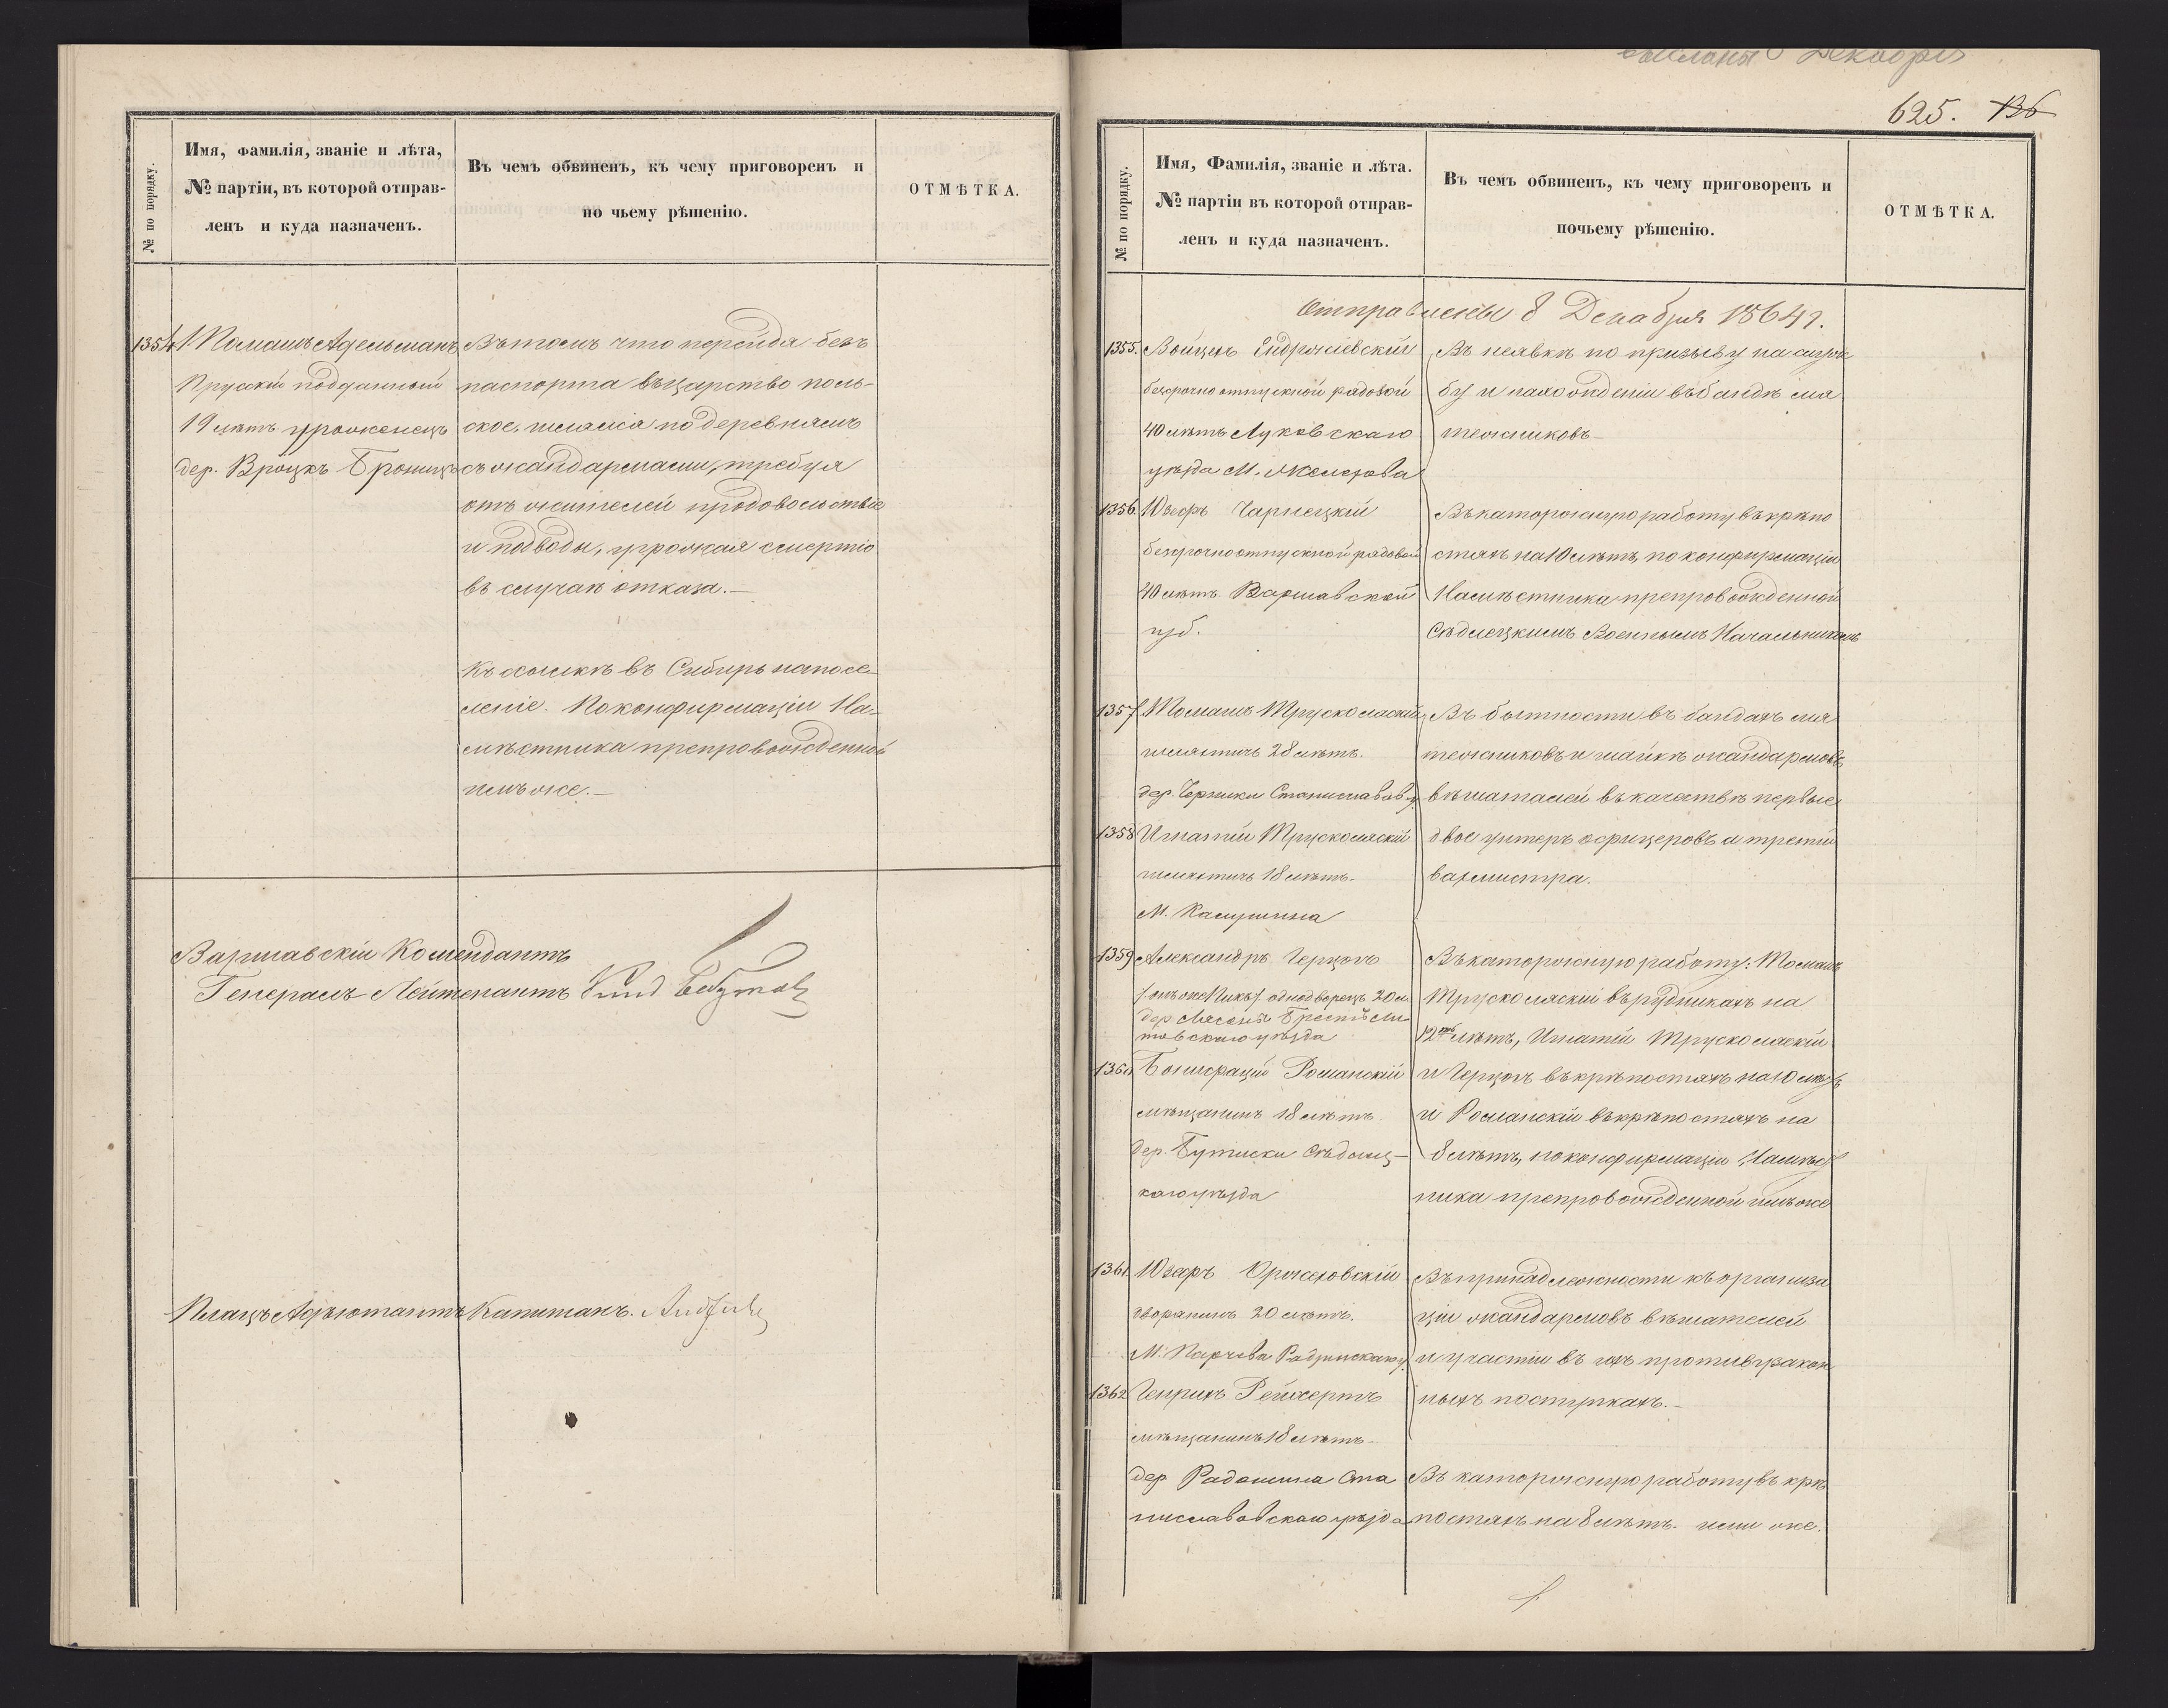 № по порядку.
Имя, Фамилія, званіе и лѣта,
№ партіи, въ которой отправ-
ленъ и куда назначенъ.
Въ чемъ обвиненъ, къ чему приговоренъ и
по чьему рѣшенію.
ОТМѢТКА.
1354
Прускій подданный
19 лѣтъ уроженецъ
дер. Вроцкъ
Въ томъ что перейдя безъ
паспорта въ царство поль-
ское, шлялся по деревнямъ
съ жандармами, требуя
отъ жителей продовольствіе
и подводы, угрожая смертію
въ случаѣ отказа.—
Къ ссылкѣ въ Сибирь на посе-
леніе. По конфирмаціи На-
мѣстника препровожденной
имъ же.—
Варшавскій Комендантъ
Генералъ Лейтенантъ
Плацъ Адъютантъ Капитанъ.
Декабря
625. 126
№ по порядку.
Имя, Фамилія, званіе и лѣта.
№ партіи въ которой отправ-
ленъ и куда назначенъ.
Въ чемъ обвиненъ, къ чему приговоренъ и
почьему рѣшенію.
ОТМѢТКА.
Отправлены 8 Декабря 1864 г.
1355. Войцехъ Ендржіевскій
безсрочно отпускной рядовой
40 лѣтъ Луковскаго
уѣзда М. Желехова
Въ неявкѣ по призыву на служ
бу и нахожденіи въ бандѣ мя
тежниковъ—
1356. Юзефъ Чарнецкій
безсрочноотпускной рядовой
40 лѣтъ. Варшавской
губ.
Въ каторжную работу въ крѣпо
стяхъ на 10 лѣтъ, по конфирмаціи
Намѣстника препровожденной
Сѣдлецкимъ Военнымъ Начальникомъ
1357. Томашъ Трусколяскій
шляхтичъ 28 лѣтъ.
дер. Чарники Станиславов у.
Въ бытности въ бандахъ мя
тежниковъ и шайкѣ жандармовъ
вѣшателей въ качествѣ первые
двое унтеръ офицеровъ а третій
вахмистра.
1358 Игнатій Трусколяскій
шляхтичъ 18 лѣтъ.
М. Калушина
1359 Александръ Герцогъ
однодворецъ 20 л.
товскаго уѣзда
Въ каторжную работу: Томашъ
Трусколяскій въ рудникахъ на
12ть лѣтъ, Игнатій Трусколяскій
и Герцогъ въ крѣпостяхъ на 10 лѣтъ
и Романскій въ крѣпостяхъ на
8 лѣтъ, по конфирмаціи Намѣст
ника препровожденной имъ же
1360 Бонифацій Романскій
мѣщанинъ 18 лѣтъ.
дер. Сѣдлец-
каго уѣзда
1361. Юзефъ Оржеховскій
дворянинъ 20 лѣтъ.
М. Парчева Радзинскаго у.
Въ принадлежности къ организа
ціи жандармовъ вѣшателей
и участіи въ ихъ противузакон
ныхъ поступкахъ.—
1362 Генрихъ Рейхертъ
мѣщанинъ 18 лѣтъ—
дер Радошина Ста
ниславовскаго уѣзда
Въ каторжную работу въ крѣ
постяхъ на 8 лѣтъ. ими же.